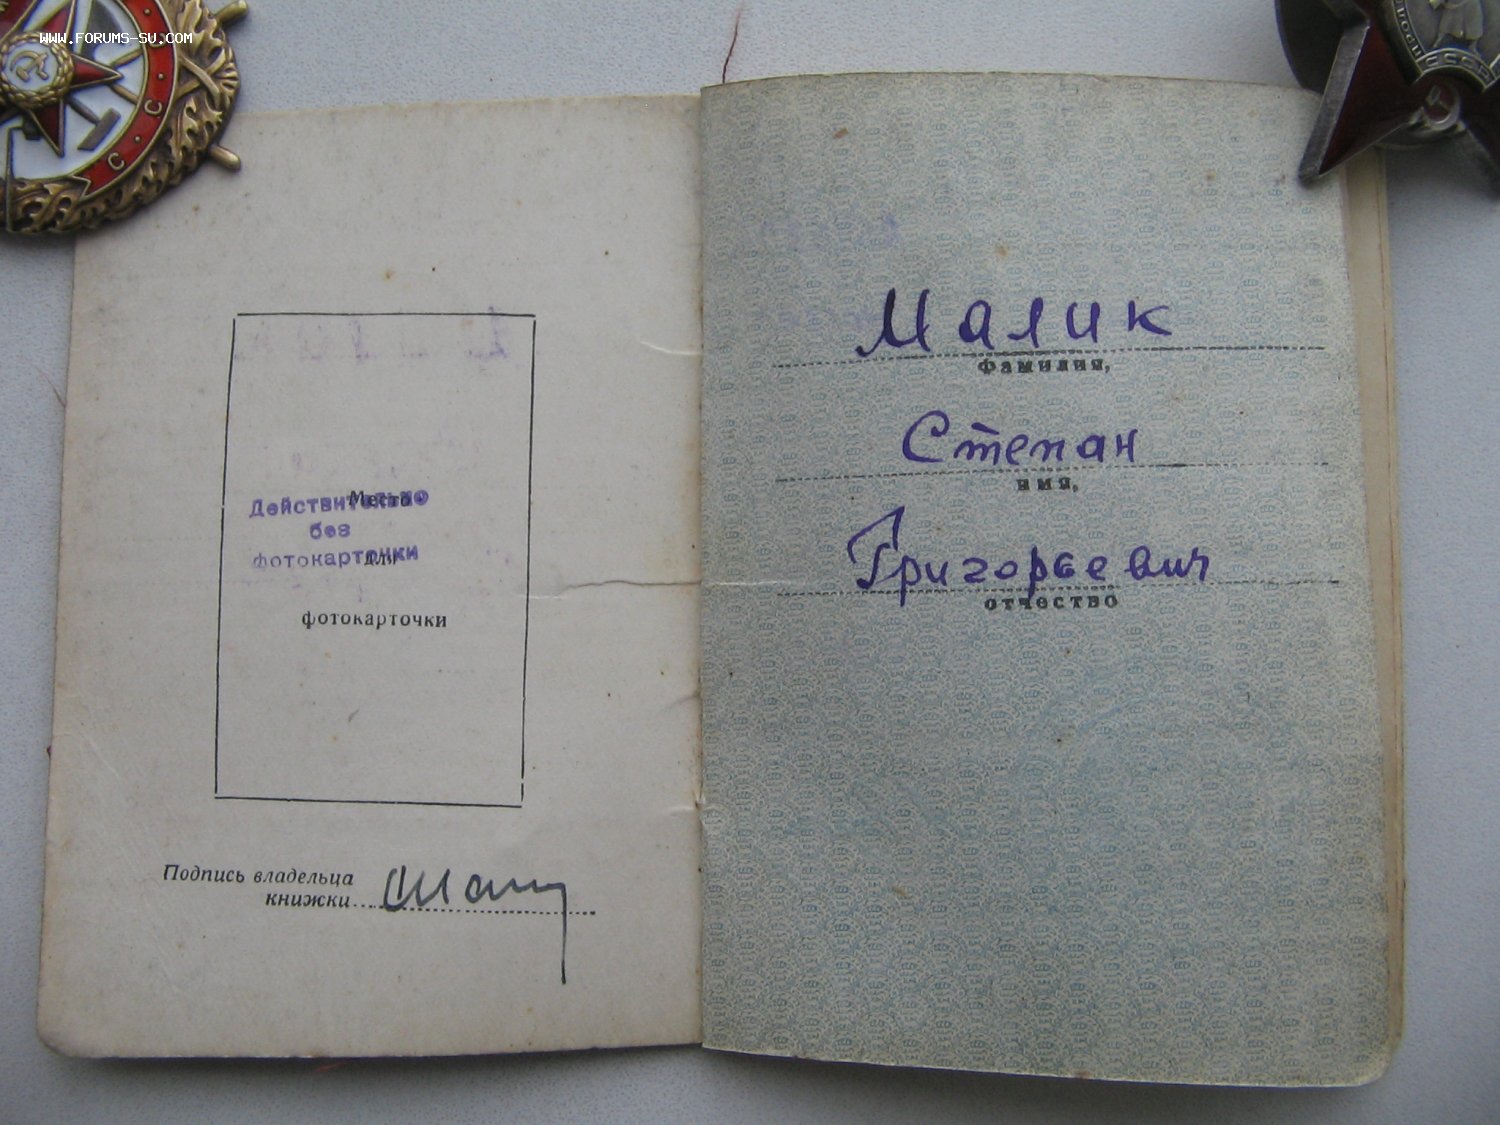 WWW.FORUMS-SU.COM
С С
СССР
Действительно
без
фотокарточки
Место
для
фотокарточки
Подпись владельца
книжки
Малик
фамилия,
Степан
имя,
Григорьевич
отчество